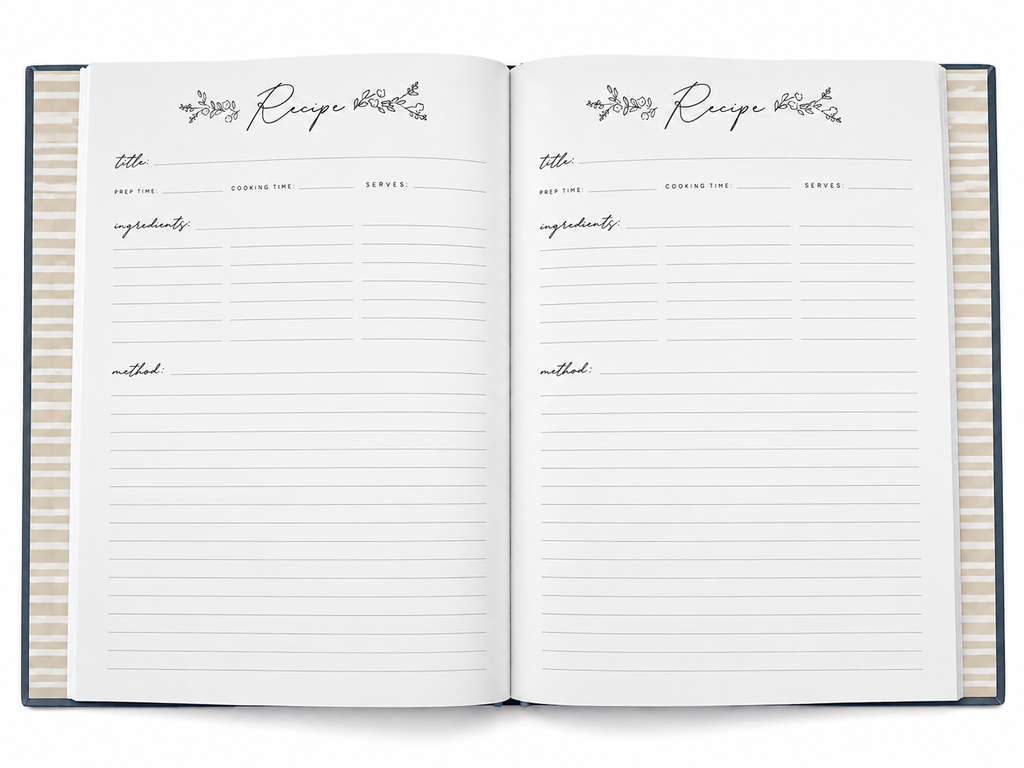 Recipe
title:
PREP TIME: COOKING TIME: SERVES:
ingredients:
method:
Recipe
title:
PREP TIME: COOKING TIME: SERVES:
ingredients:
method: